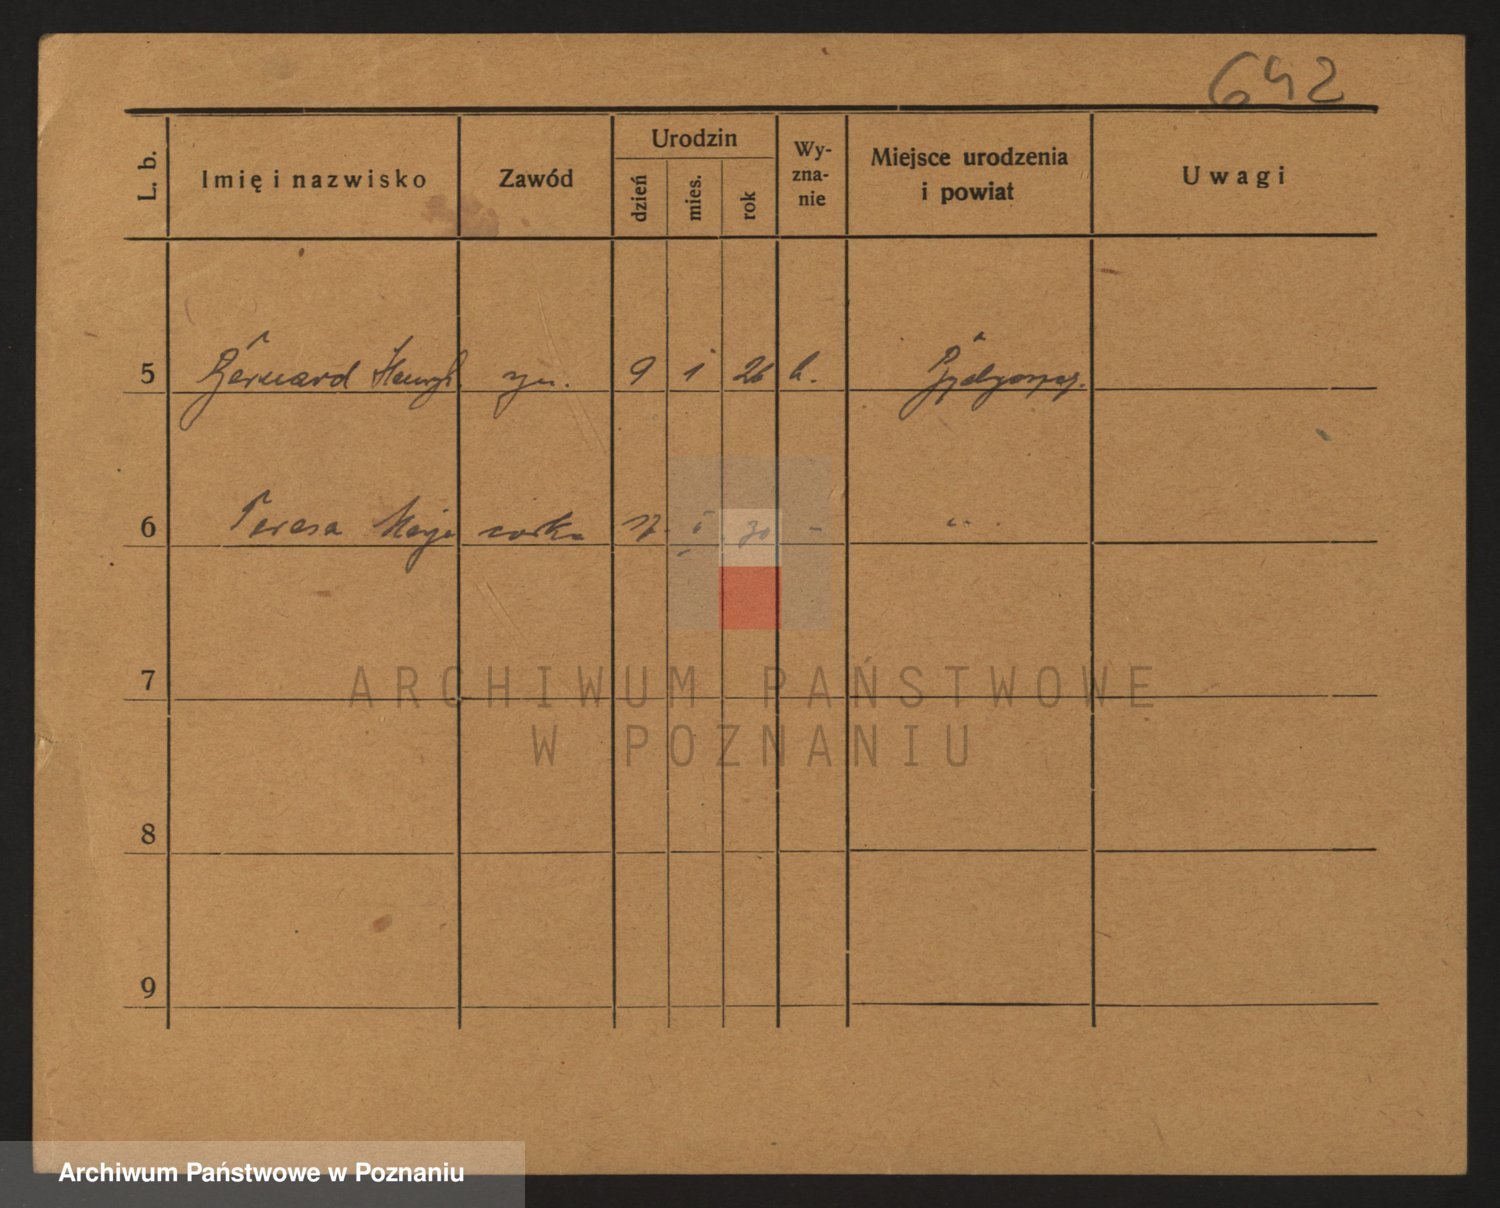 642
L. b. Imię i nazwisko Zawód Urodzin dzień mies. rok Wy-zna-nie Miejsce urodzenia i powiat Uwagi
5 Bernard Henryk syn. 9 1 26 k. Bydgoszcz.
6 Teresa Marja corka 17. 30 - " .
7
ARCHIWUM PAŃSTWOWE
W POZNANIU
8
9
Archiwum Państwowe w Poznaniu